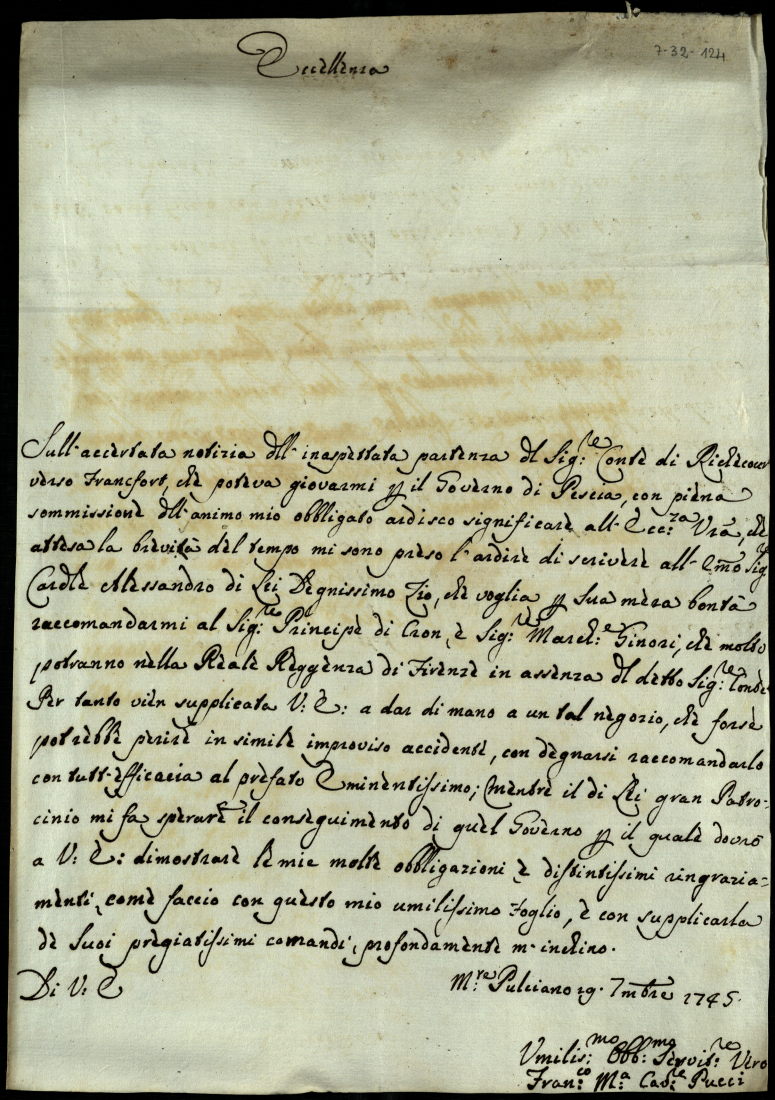 7-32-124
Eccellenza
Sull'accertata notizia dll'inaspettata partenza dl Sig:re Conte di Richecour
verso Francfort, che poteva giovarmi p il Governo di Pescia, con piena
sommissione dll'animo mio obbligato ardisco significare all'Ecc:za Vrā, che
attesa la brevità del tempo mi sono preso l'ardire di scrivere all'Emo Sig:
Cardle Alessandro di Lei Degnissimo Zio, che voglia p sua mera bontà
raccomandarmi al Sig:re Principe di Cron, e Sig:re March:e Ginori, che molto
potranno nella Reale Reggenza di Firenze in assenza dl detto Sig:re Conte
Per tanto vien supplicata V: E: a dar di mano a un tal negozio, che forse
potrebbe perire in simile improviso accidente, con degnarsi raccomandarlo
con tutt'efficacia al prefato Eminentissimo; Mentre il di Lei gran Patro-
cinio mi fa sperare il conseguimento di quel Governo p il quale dovrò
a V: E: dimostrare le mie molte obbligazioni e distintissimi ringrazia-
menti, come faccio con questo mio umilissimo Foglio, e con supplicarla
de Suoi pregiatissimi comandi, profondamente m'inchino.
Di V: E
M:re Pulciano 29. 7mbre 1745.
Vmilis:mo Obb:mo Servit:re Vero
Fran:co M:a Cav:re Pucci